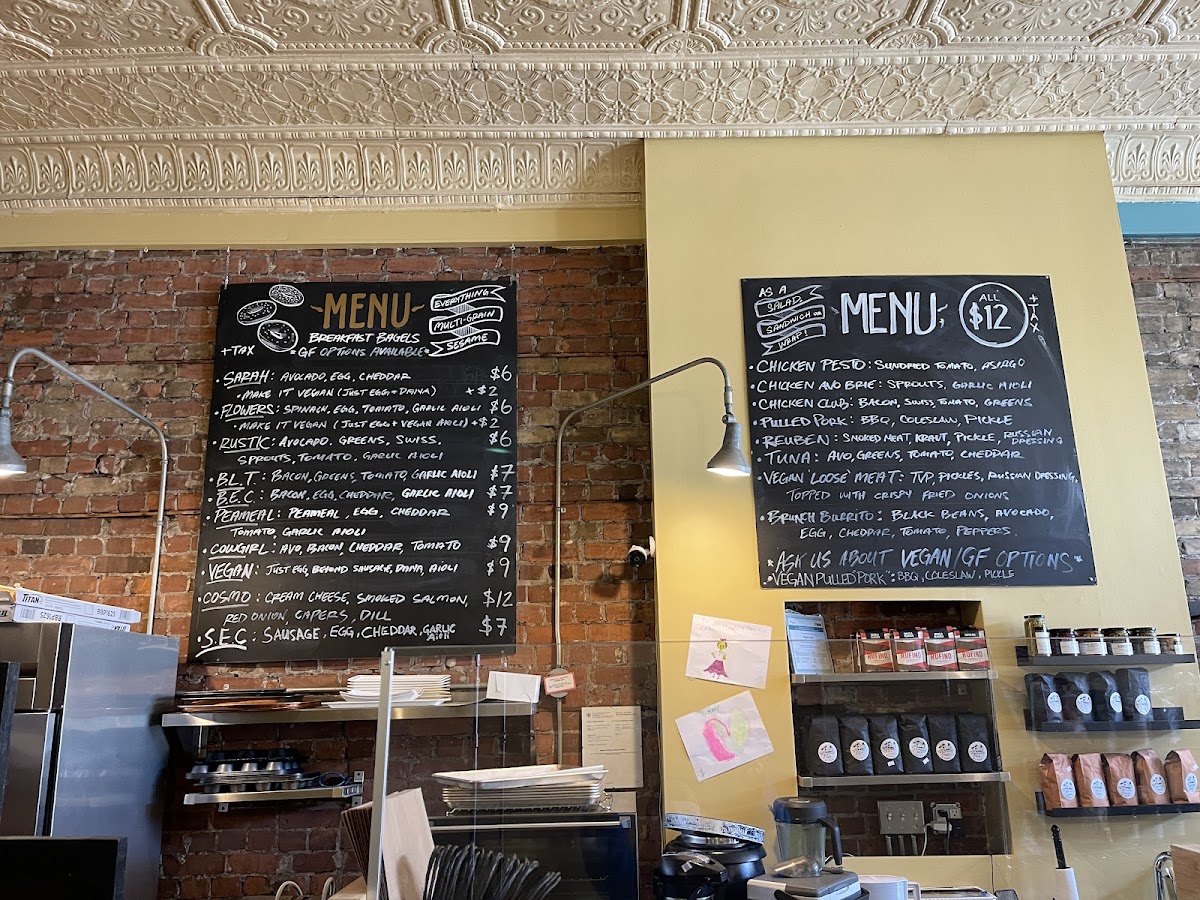 MENU
BREAKFAST BAGELS
*GF OPTIONS AVAILABLE*
+TAX
EVERYTHING
MULTI-GRAIN
SESAME
• SARAH: AVOCADO, EGG, CHEDDAR $6
• MAKE IT VEGAN (JUST EGG + DAIYA) +$2
• FLOWERS: SPINACH, EGG, TOMATO, GARLIC AIOLI $6
• MAKE IT VEGAN (JUST EGG + VEGAN AIOLI) +$2
• RUSTIC: AVOCADO, GREENS, SWISS, $6
SPROUTS, TOMATO, GARLIC AIOLI
• B.L.T: BACON, GREENS, TOMATO, GARLIC AIOLI $7
• B.E.C: BACON, EGG, CHEDDAR, GARLIC AIOLI $7
• PEAMEAL: PEAMEAL, EGG, CHEDDAR $9
TOMATO, GARLIC AIOLI
• COWGIRL: AVO, BACON, CHEDDAR, TOMATO $9
• VEGAN: JUST EGG, BEYOND SAUSAGE, DAIYA, AIOLI $9
• COSMO: CREAM CHEESE, SMOKED SALMON, $12
RED ONION, CAPERS, DILL
• S.E.C: SAUSAGE, EGG, CHEDDAR, GARLIC AIOLI $7
AS A
SALAD,
SANDWICH OR
WRAP!
MENU
ALL
$12
+TAX
• CHICKEN PESTO: SUNDRIED TOMATO, ASIAGO
• CHICKEN AVO BRIE: SPROUTS, GARLIC AIOLI
• CHICKEN CLUB: BACON, SWISS, TOMATO, GREENS
• PULLED PORK: BBQ, COLESLAW, PICKLE
• REUBEN: SMOKED MEAT, KRAUT, PICKLE, RUSSIAN DRESSING
• TUNA: AVO, GREENS, TOMATO, CHEDDAR
• VEGAN 'LOOSE' MEAT: TVP, PICKLES, RUSSIAN DRESSING,
TOPPED WITH CRISPY FRIED ONIONS
• BRUNCH BURRITO: BLACK BEANS, AVOCADO,
EGG, CHEDDAR, TOMATO, PEPPERS.
*ASK US ABOUT VEGAN/GF OPTIONS*
• VEGAN PULLED 'PORK': BBQ, COLESLAW, PICKLE
TITAN
RUFINO
RUFINO
RUFINO
RUFINO